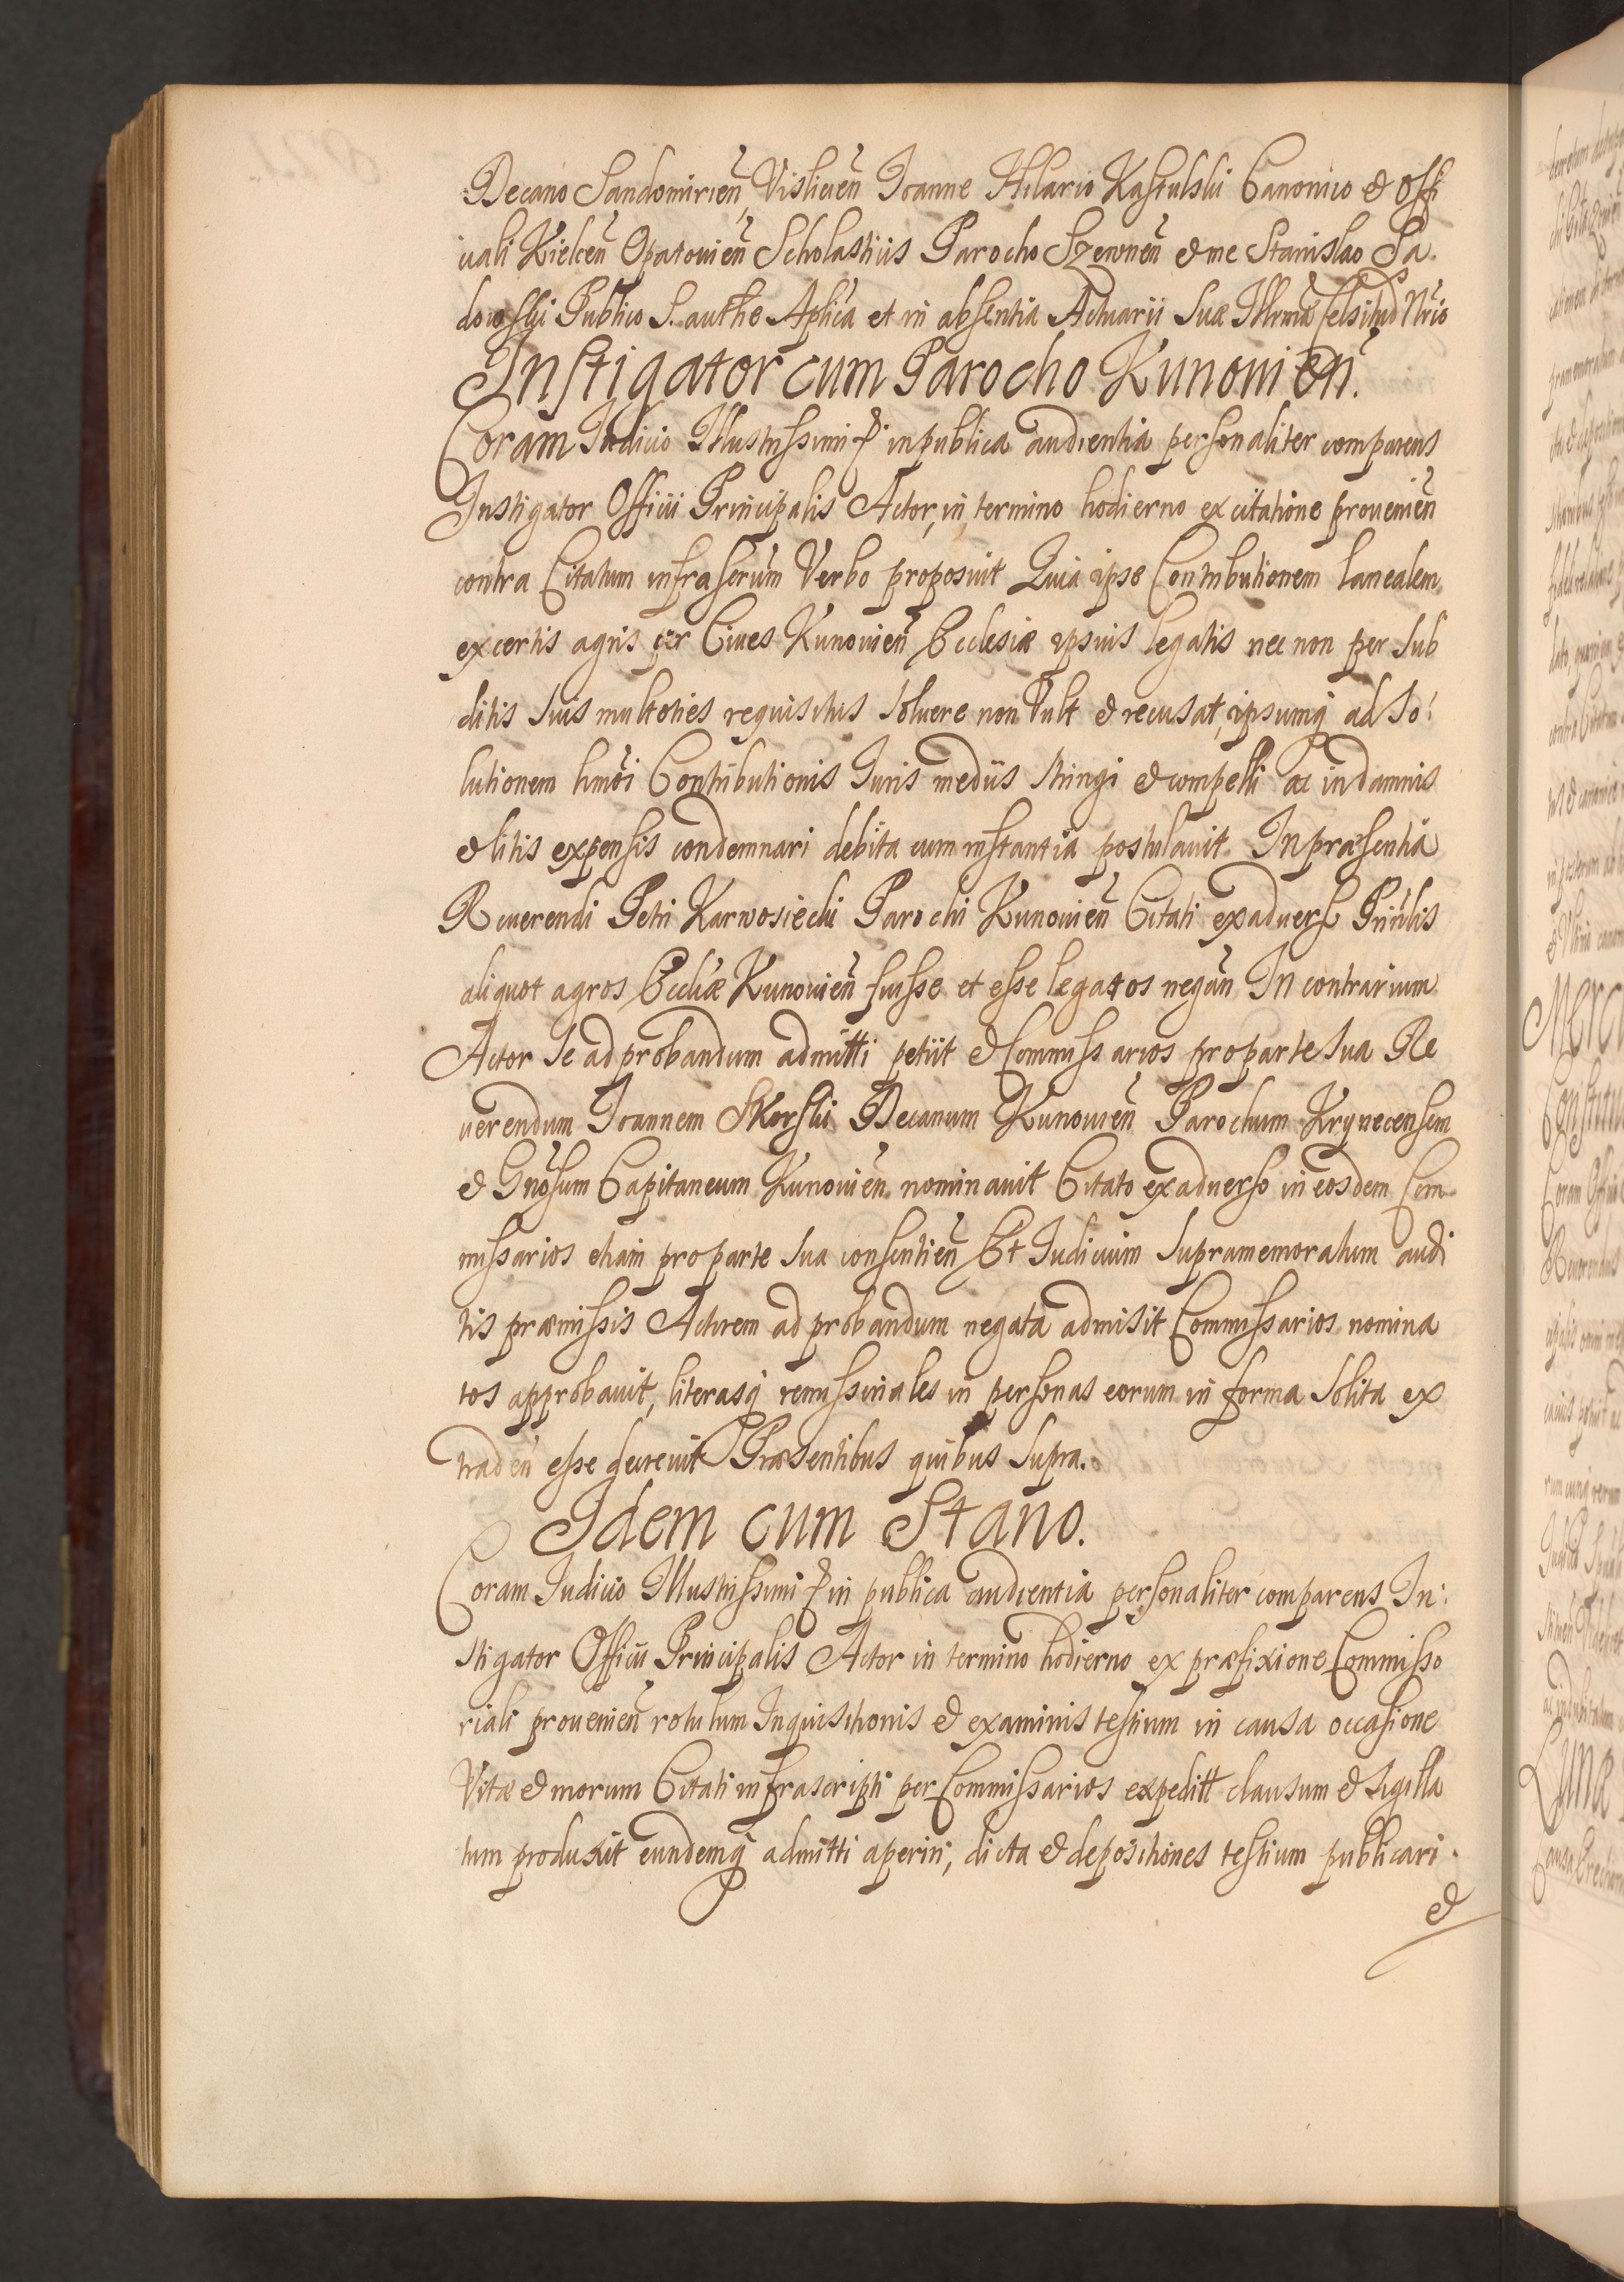 Decano Sandomirien, Vislicien Joanne Hilario Kastulski Canonico & Offi
ciali Kielcen Opatovien Scholasticis Parocho Szewnen & me Stanislao Sa
dowski Publico S. authe Aplica et in absentia Actuarii Suæ Illrmæ Celsitud Nrio
Instigator cum Parocho Kunovien.
Coram Iudicio Illustrissimi & in publica audientia personaliter comparens
Instigator Officii Principalis Actor, in termino hodierno ex citatione provenien
contra Citatum infrascrum Verbo proposuit Quia ipse Contributionem lanealem
ex certis agris per Cives Kunovien Ecclesiæ ipsius legatis nec non per Sub
ditis Suis multoties requisitus Solvere non Vult & recusat, ipsumq ad So:
lutionem hmoi Contributionis Iuris mediis Stringi & compelli ac in damnis
& litis expensis condemnari debita cum instantia postulavit. In præsentia
Reverendi Petri Karwosiecki Parochi Kunovien Citati ex adverso Prinlis
aliquot agros Eccliæ Kunovien fuisse et esse legatos negan In contrarium
Actor Se ad probandum admitti petiit & Commissarios pro parte Sua Re
verendum Joannem Skorski Decanum Kunovien Parochum Krynecensem
& Gnosum Capitaneum Kunovien nominavit Citato ex adverso in eosdem Com
missarios etiam pro parte Sua consentien Et Iudicium Supramemoratum audi
tis præmissis Actorem ad probandum negata admisit Commissarios nomina
tos approbavit, literasq remissoriales in personas eorum in forma Solita ex
traden esse decrevit Præsentibus quibus Supra.
Idem cum Stano.
Coram Iudicio Illustrissimi & in publica audientia personaliter comparens In:
stigator Officii Principalis Actor in termino hodierno ex præfixione Commisso
riali provenien rotulum Inquisitionis & examinis testium in causa occasione
Vitæ & morum Citati infrascripti per Commissarios expeditt clausum & Sigilla
tum produxit eundemq admitti aperiri, dicta & depositiones testium publicari
&